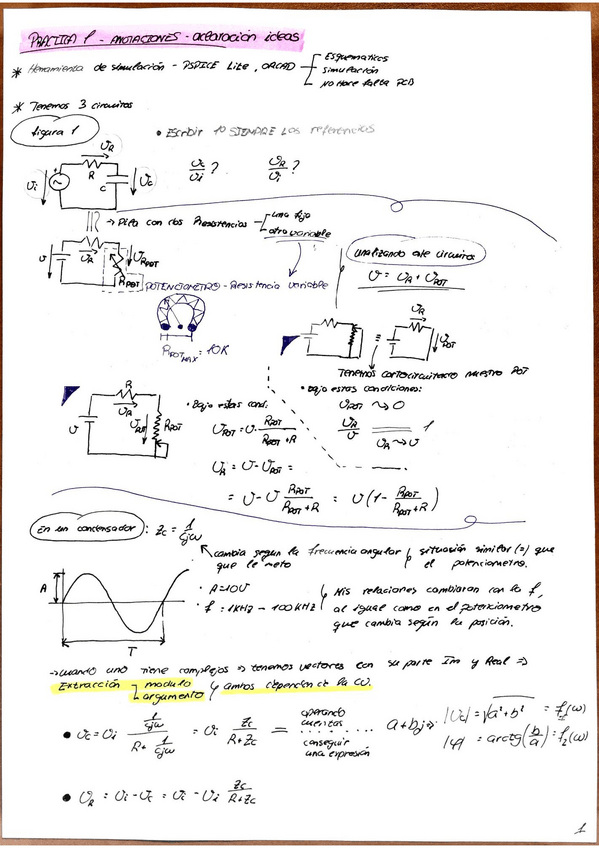 PRACTICA 1 - ANOTACIONES - aclaración ideas
* Herramienta de simulación - PSPICE Lite, ORCAD
Esquematicos
simulación
NO Hace falta PCB
* Tenemos 3 circuitos
figura 1
• Escribir SIEMPRE LAS referencias
Vi R VR C Vc
Vc/Vi ? VR/Vi ?
→ Pila con dos Resistencias
una fija
otra variable
V VR VRPOT RPOT
POTENCIOMETRO - Resistencia variable
RPOT MAX = 10K
analizando este circuito
V = VR + VPOT
VR VPOT
Tenemos cortocircuitado nuestro POT
• Bajo estas condiciones:
VPOT ~> 0
VR/V = 1
VR ~> V
V R VR VPOT RPOT
• Bajo estas cond:
VPOT = V · RPOT/(RPOT + R)
VR = V - VPOT =
= V - V RPOT/(RPOT + R) = V (1 - RPOT/(RPOT + R))
En un condensador : Zc = 1/Cjω
cambia segun la frecuencia angular que le meto
situación similar (=) que el potenciometro.
A T
• A = 10V
• f = 1KHz - 100KHz
Mis relaciones cambiaran con la f, al igual como en el potenciometro que cambia según la posición.
→ cuando uno tiene complejos => tenemos vectores con su parte Im y Real =>
Extracción modulo argumento y ambos dependen de la ω.
• Vc = Vi (1/Cjω)/(R + 1/Cjω) = Vi Zc/(R + Zc) = operando cuentas conseguir una expresión a + bj => |Vc| = √(a² + b²) = f1(ω)
|φ| = arctg(b/a) = f2(ω)
• VR = Vi - Vc = Vi - Vi Zc/(R + Zc)
1